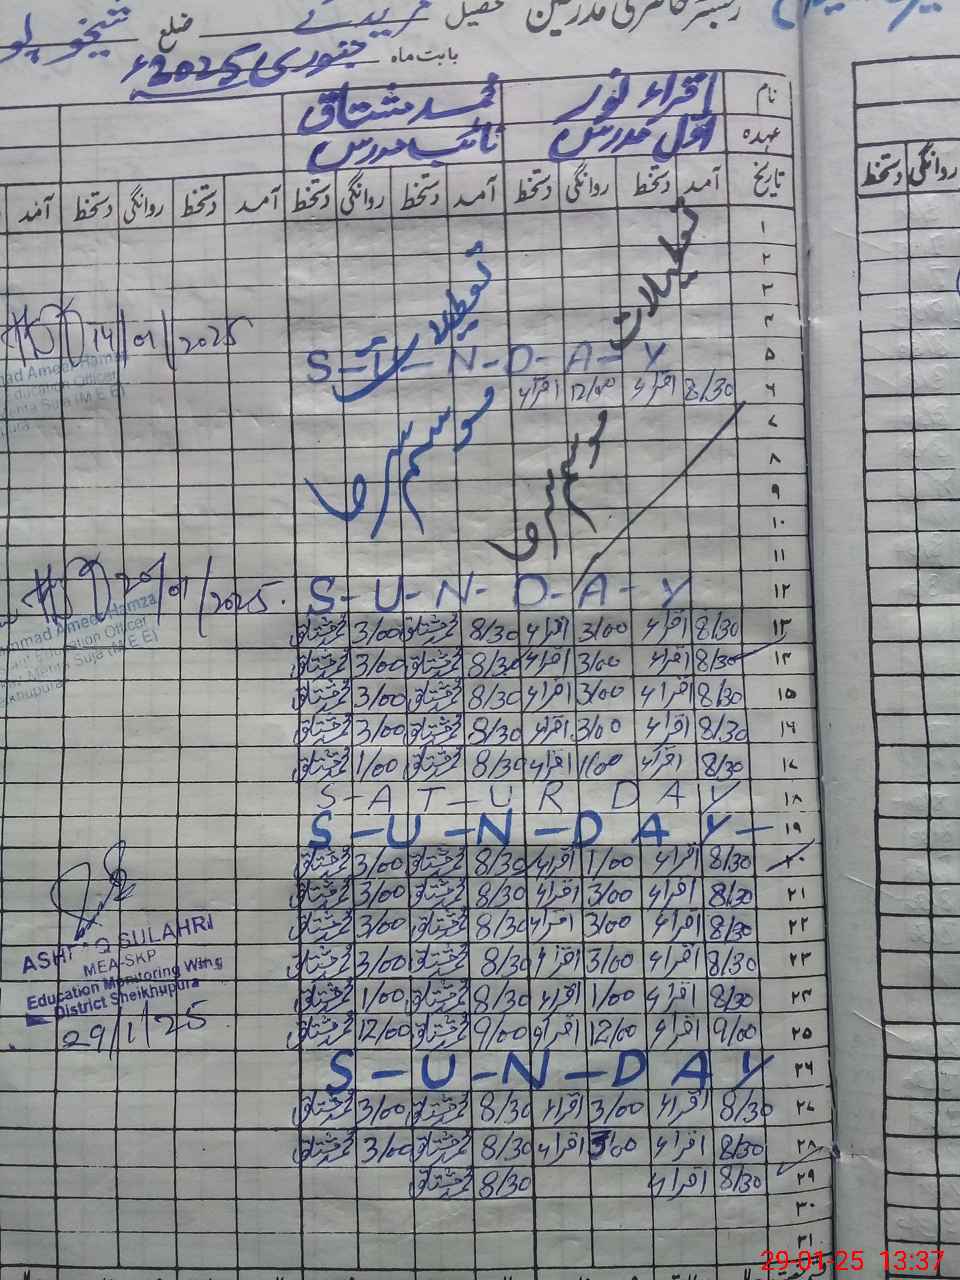 رجسٹر حاضری مدرسین تحصیل مریدکے ضلع شیخوپورہ
بابت ماہ جنوری 2025ء
نام اقراء نور محمد مشتاق
عہدہ اول مدرس نائب مدرس
تاریخ آمد دستخط روانگی دستخط آمد دستخط روانگی دستخط آمد دستخط روانگی دستخط آمد
روانگی دستخط
۱
۲ تعطیلات تعطیلات
۳
۴
۵ S-U-N-D-A-Y
۶ 8/30 اقراء 12/00 اقراء
۷
۸ موسم سرما موسم سرما
۹
۱۰
۱۱
۱۲ S-U-N-D-A-Y
۱۳ 8/30 اقراء 3/00 اقراء 8/30 محمد مشتاق 3/00 محمد مشتاق
۱۴ 8/30 اقراء 3/00 اقراء 8/30 محمد مشتاق 3/00 محمد مشتاق
۱۵ 8/30 اقراء 3/00 اقراء 8/30 محمد مشتاق 3/00 محمد مشتاق
۱۶ 8/30 اقراء 3/00 اقراء 8/30 محمد مشتاق 3/00 محمد مشتاق
۱۷ 8/30 اقراء 1/00 اقراء 8/30 محمد مشتاق 1/00 محمد مشتاق
۱۸ S-A-T-U-R DAY
۱۹ S-U-N-DAY-
۲۰ 8/30 اقراء 1/00 اقراء 8/30 محمد مشتاق 3/00 محمد مشتاق
۲۱ 8/30 اقراء 3/00 اقراء 8/30 محمد مشتاق 3/00 محمد مشتاق
۲۲ 8/30 اقراء 3/00 اقراء 8/30 محمد مشتاق 3/00 محمد مشتاق
۲۳ 8/30 اقراء 3/00 اقراء 8/30 محمد مشتاق 3/00 محمد مشتاق
۲۴ 8/30 اقراء 1/00 اقراء 8/30 محمد مشتاق 1/00 محمد مشتاق
۲۵ 9/00 اقراء 12/00 اقراء 9/00 محمد مشتاق 12/00 محمد مشتاق
۲۶ S-U-N-DAY
۲۷ 8/30 اقراء 3/00 اقراء 8/30 محمد مشتاق 3/00 محمد مشتاق
۲۸ 8/30 اقراء 3/00 اقراء 8/30 محمد مشتاق 3/00 محمد مشتاق
۲۹ 8/30 اقراء 8/30 محمد مشتاق
۳۰
۳۱
14/01/2025
Ameer Hamza
Education Officer
Suja (M E E)
20/01/2025.
Ameer Hamza
Education Officer
Suja (M E E)
khupura
SULAHRI
MEA-SKP
Education Monitoring Wing
District Sheikhupura
29/1/25
29-01-25 13:37